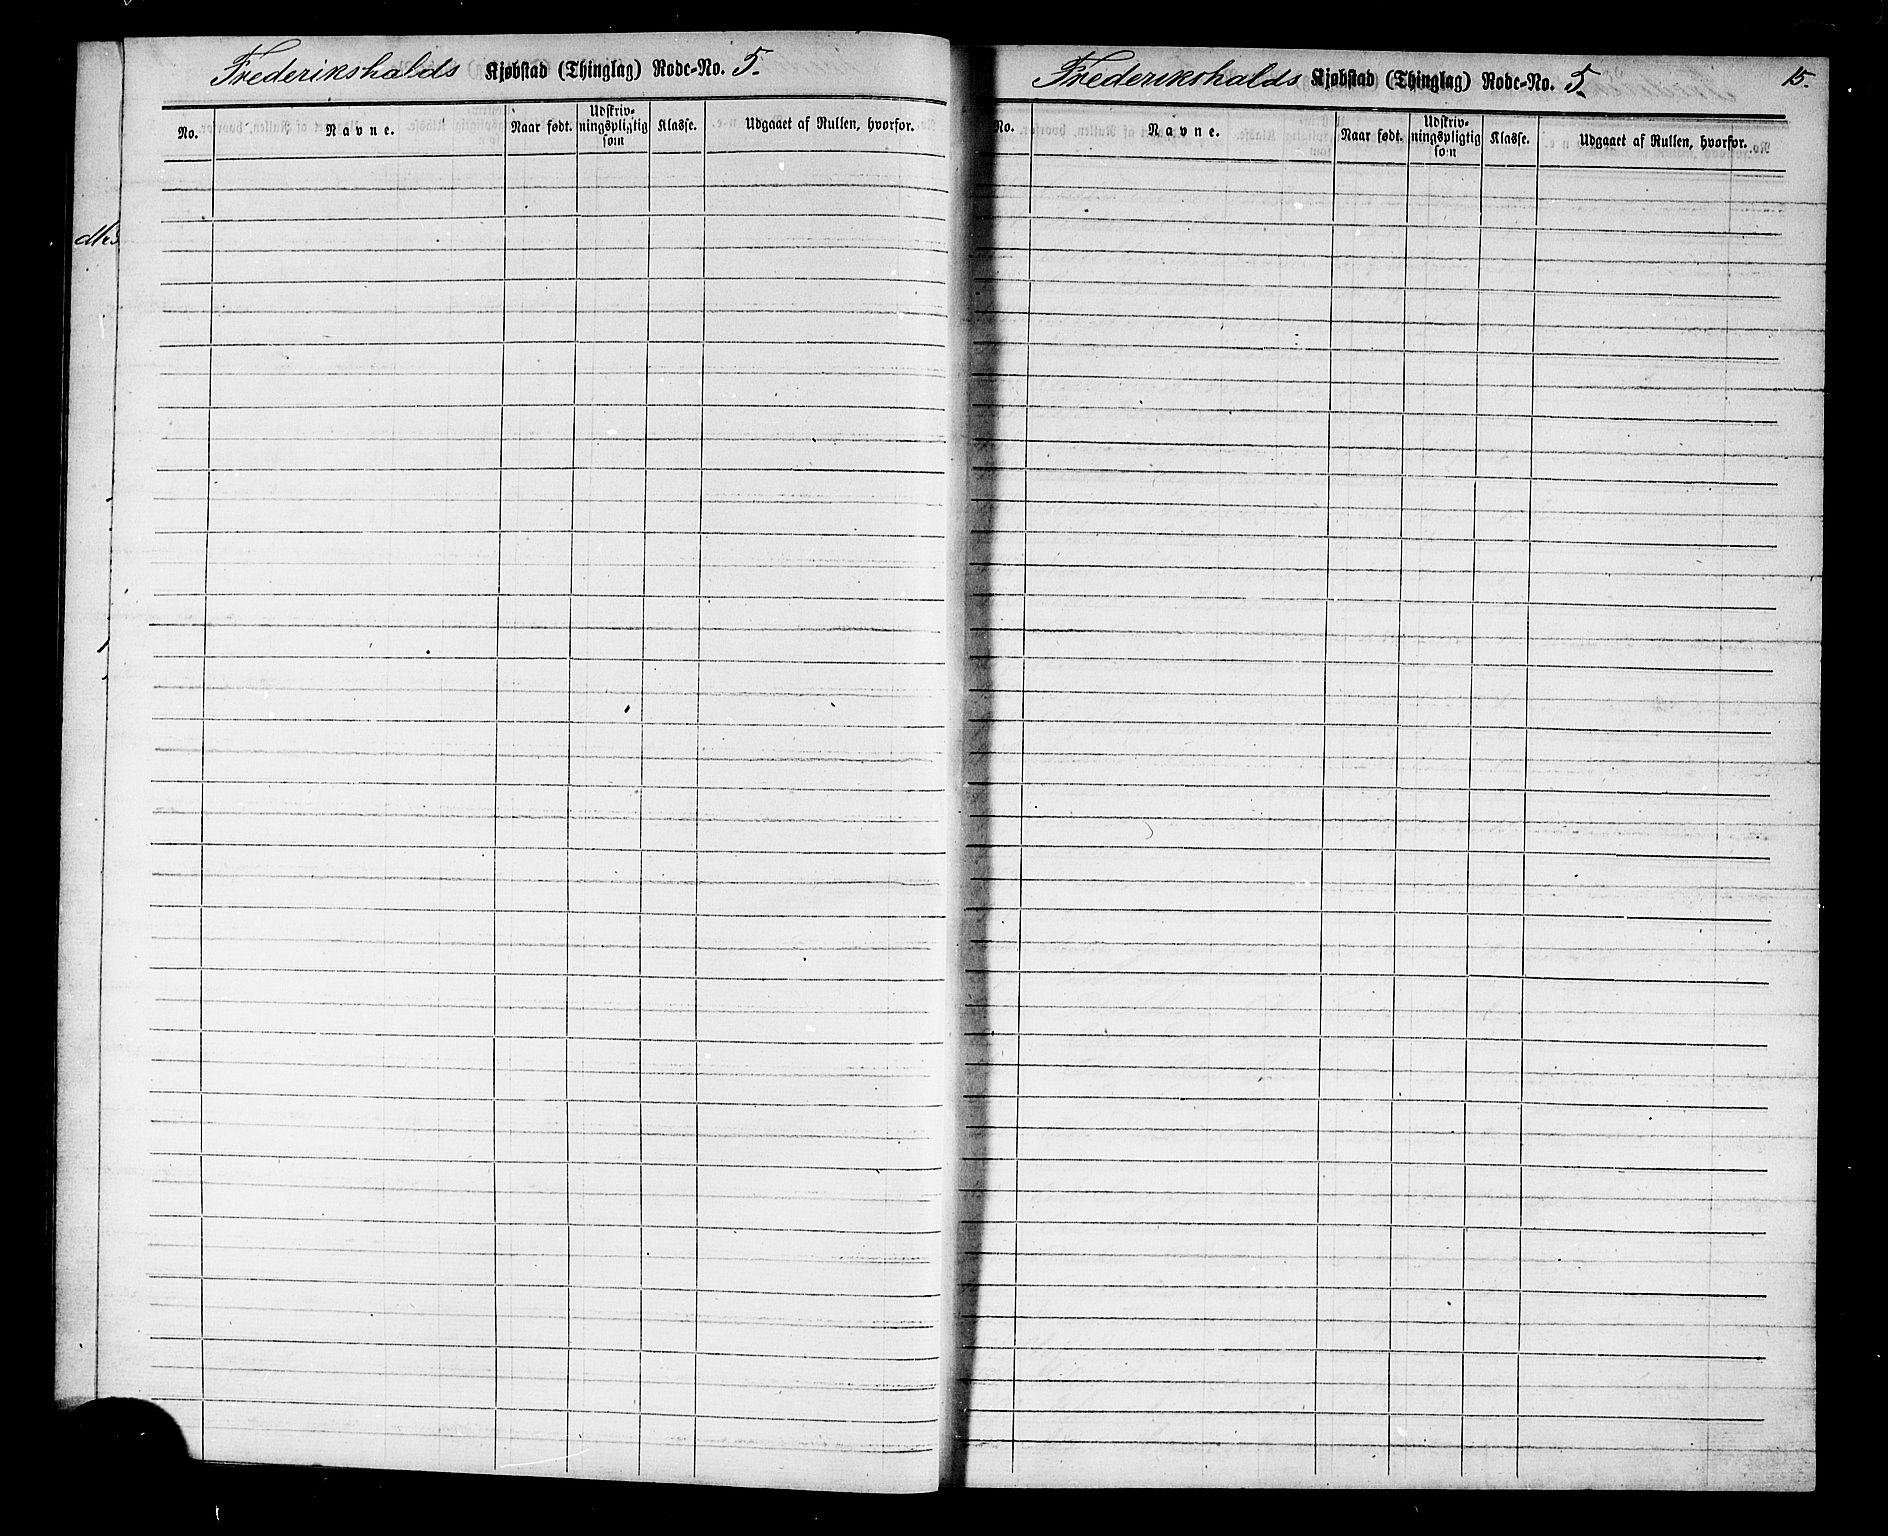 Frederikshalds Kjøbstad (Thinglag) Rode-No. 5.
No. Navne. Naar født. Udskriv-ningspligtig som Klasse. Udgaaet af Rullen, hvorfor.
Frederikshalds Kjøbstad (Thinglag) Rode-No. 5. 15.
No. Navne. Naar født. Udskriv-ningspligtig som Klasse. Udgaaet af Rullen, hvorfor.